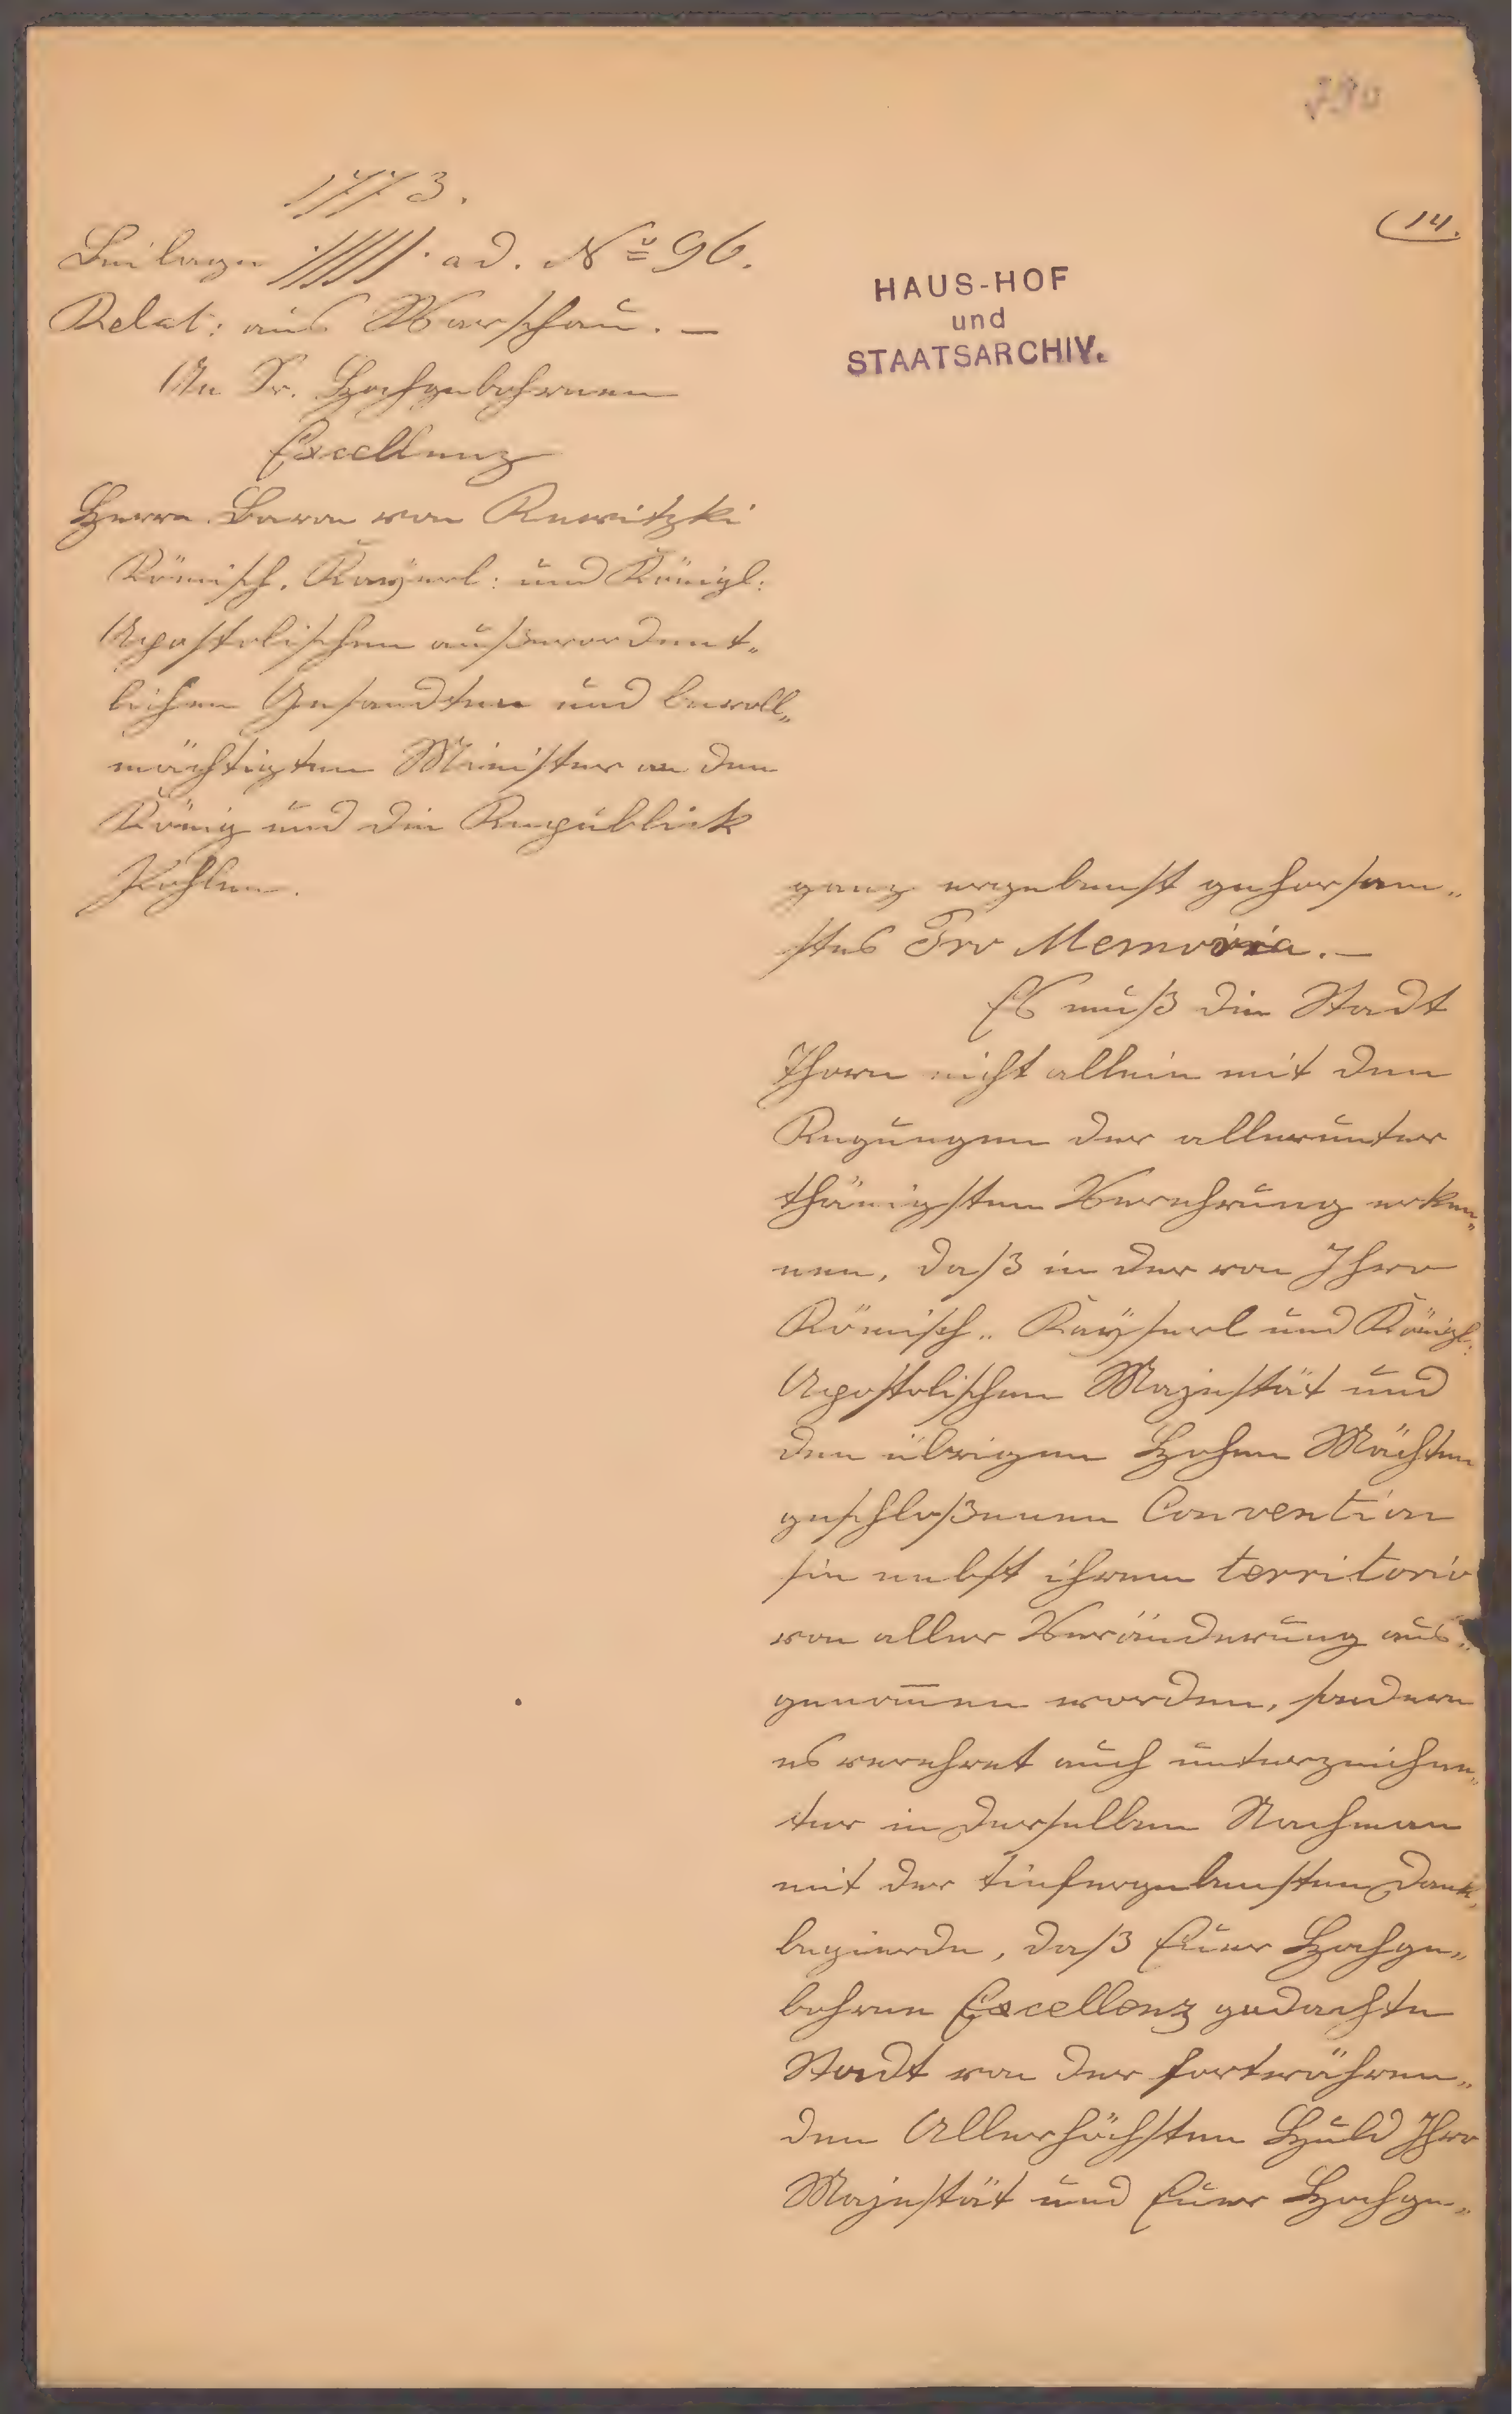 1773.
Beilage ///// ad. No 96.
Relat: aus Warschau. —
An Sr. Hochgebohrnen
Excellenz
Herrn Baron von Rewitzki
Römisch. Kayserl: und Königl:
Apostolischen außerordent„
lichen Gesandten und bevoll„
mächtigten Minister an den
König und die Republick
Pohlen.
(14.
HAUS-HOF
und
STAATSARCHIV.
ganz ergebenst gehorsam„
stes Pro Memoria. —
Es muß die Stadt
Thorn nicht allein mit den
Regungen der allerunter
thänigsten Verehrung erken„
nen, daß in der von Ihro
Römisch„ Kayserl und Königl:
Apostolischen Majestät und
den übrigen Hohen Mächten
geschloßenen Convention
sie nebst ihrem territorio
von aller Veränderung aus„
genom̄en worden, sondern
es verehret auch unterzeichne„
ter in derselben Nachmen
mit der tiefergebensten Dank„
begierde, daß Euer Hochge„
bohrne Excellenz gedachte
Stadt von der fortwähren„
den Allerhöchsten Huld Ihro
Majestät und Euer Hochge„